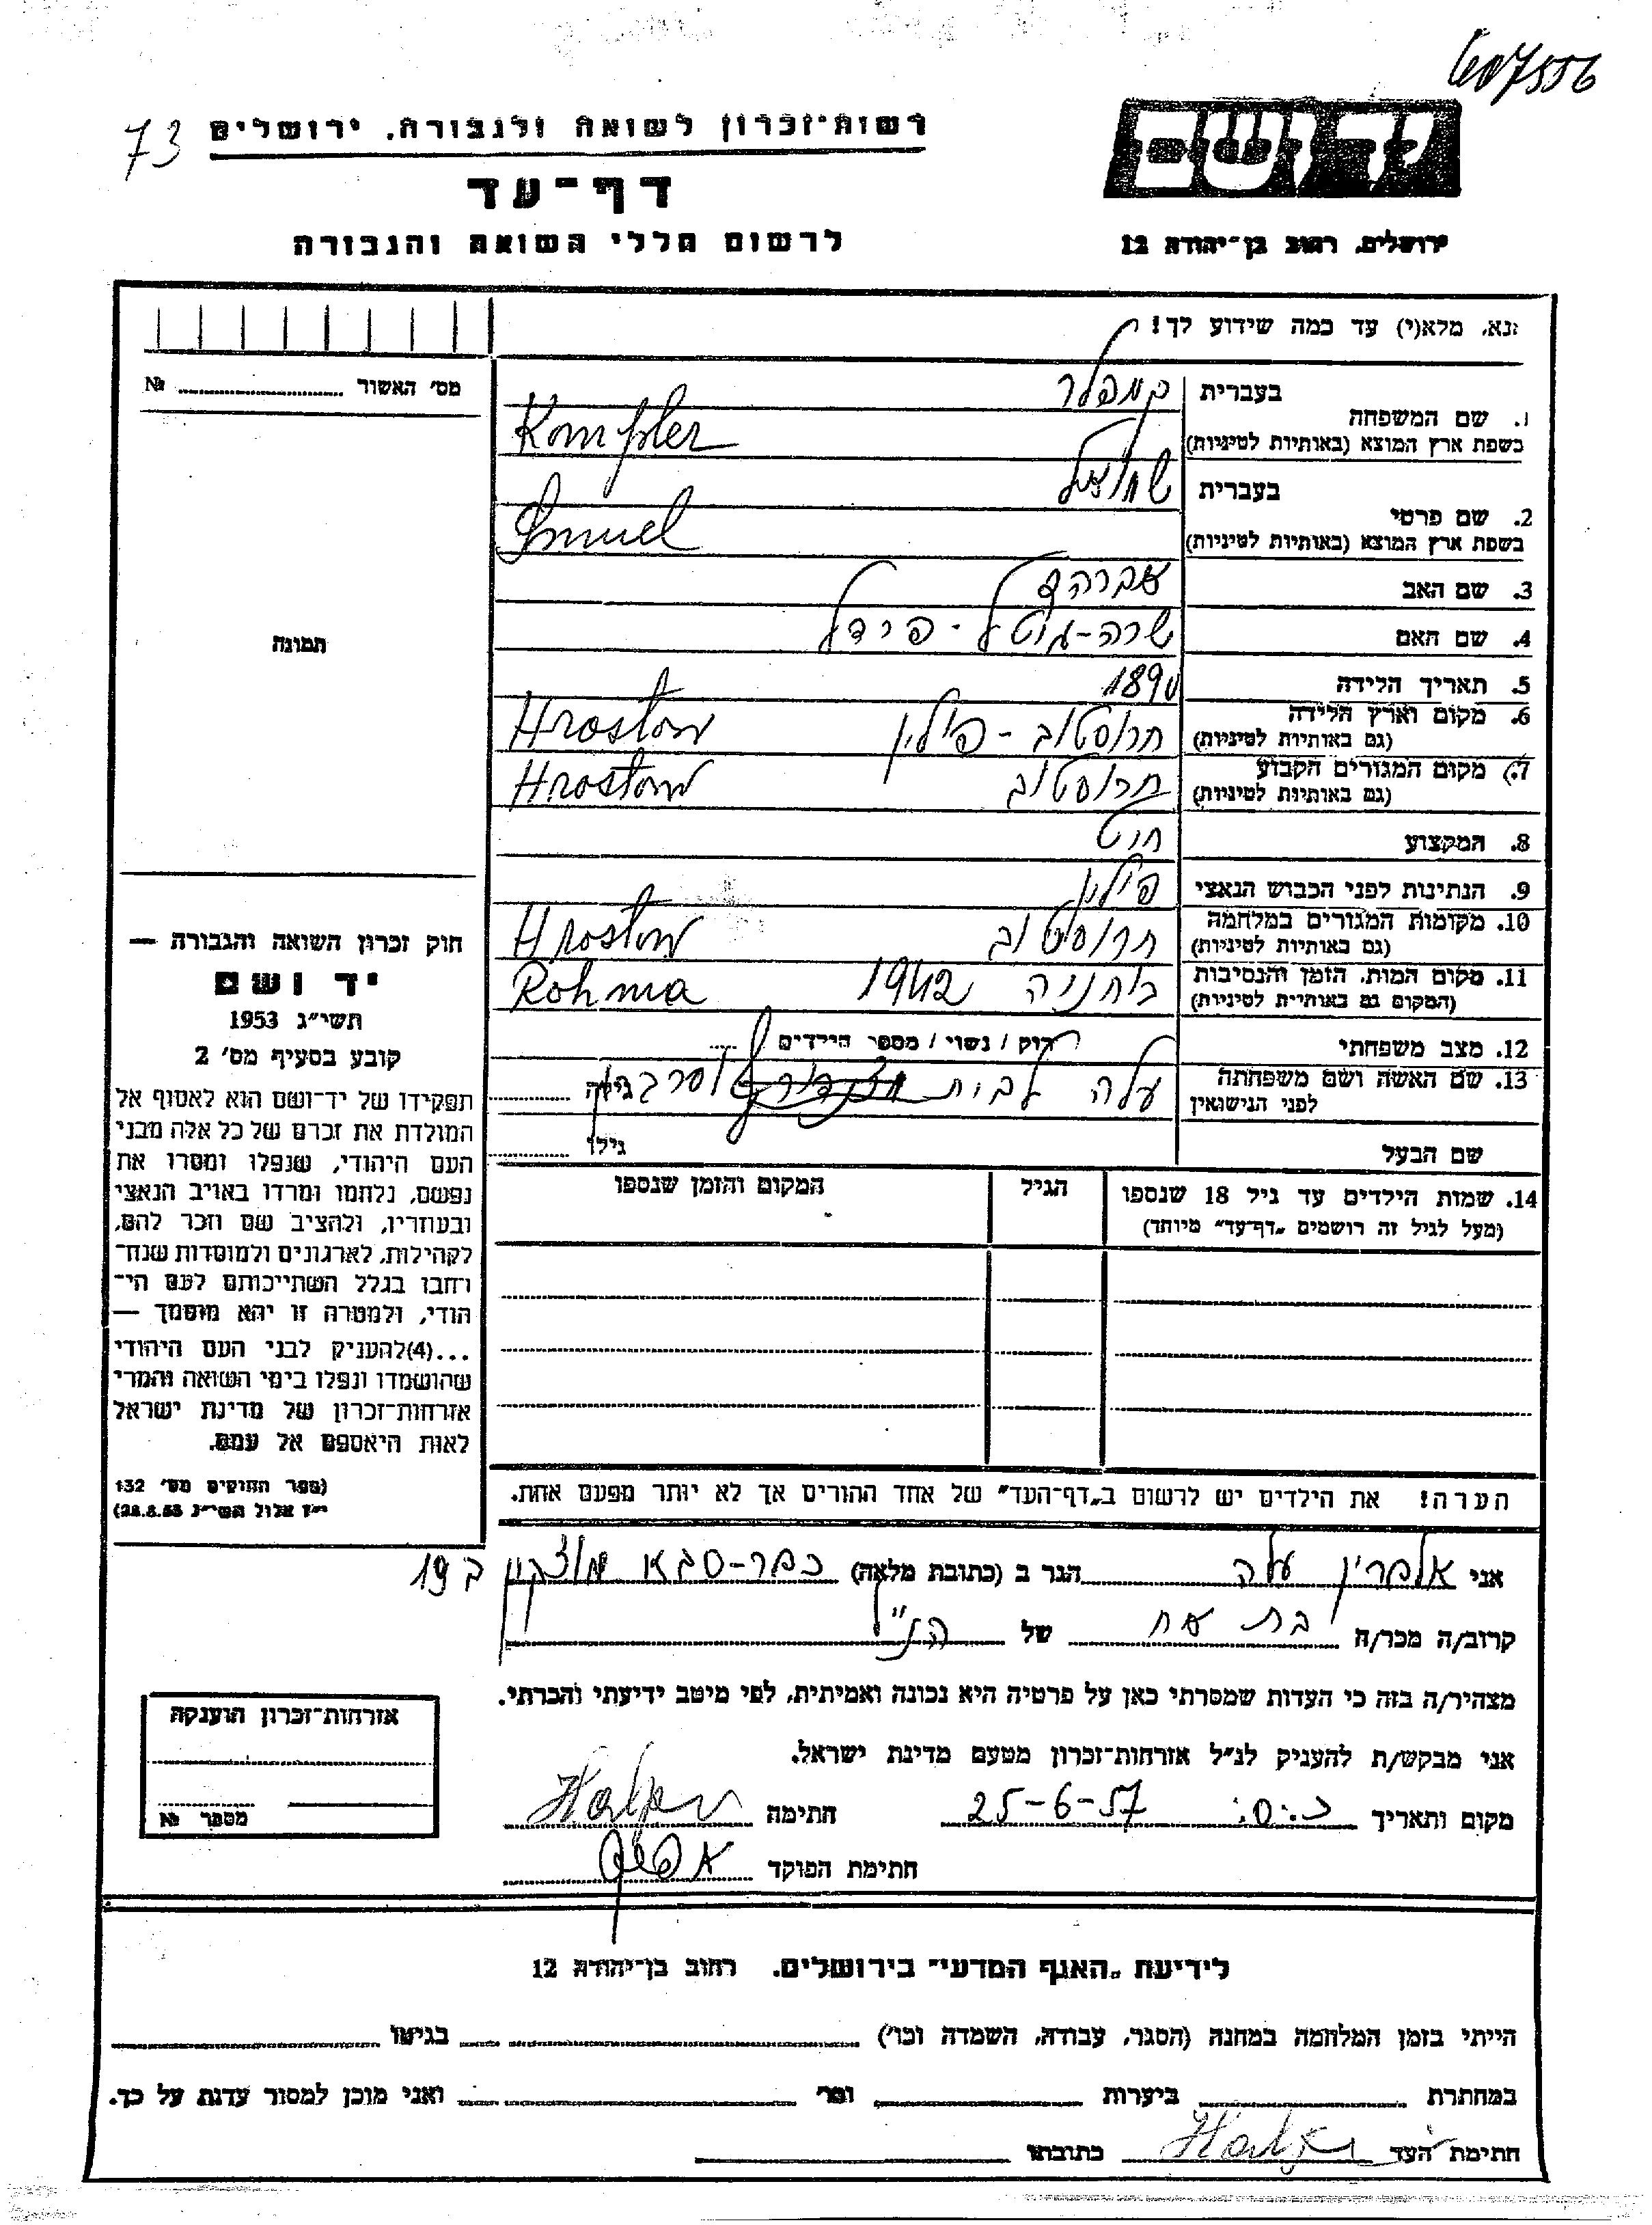 607556
73
רשות־זכרון לשואה ולגבורה, ירושלים
יד ושם
דף־עד
לרשום חללי השואה והגבורה
ירושלים, רחוב בן־יהודה 12
נא, מלא(י) עד כמה שידוע לך!
מס׳ האשור № 
1. שם המשפחה
בעברית קמפלר
בשפת ארץ המוצא (באותיות לטיניות) Kompler
2. שם פרטי
בעברית שמואל
בשפת ארץ המוצא (באותיות לטיניות) Smuel
3. שם האב אברהם
4. שם האם שרה-גיטל-פרידל
5. תאריך הלידה 1890
6. מקום וארץ הלידה
(גם באותיות לטיניות) חרוסטוב - פולין Hrostow
7. מקום המגורים הקבוע
(גם באותיות לטיניות) חרוסטוב Hrostow
8. המקצוע חיט
9. הנתינות לפני הכבוש הנאצי פולין
10. מקומות המגורים במלחמה
(גם באותיות לטיניות) חרוסטוב Hrostow
11. מקום המות, הזמן והנסיבות
(המקום גם באותיות לטיניות) 1942 Rohma
12. מצב משפחתי רוק / נשוי / מספר הילדים
13. שם האשה ושם משפחתה
לפני הנישואין לבית גילה
שם הבעל גילו
14. שמות הילדים עד גיל 18 שנספו
(מעל לגיל זה רושמים „דף־עד" מיוחד)
הגיל
המקום והזמן שנספו
תמונה
חוק זכרון השואה והגבורה —
יד ושם
תשי״ג 1953
קובע בסעיף מס׳ 2
תפקידו של יד־ושם הוא לאסוף אל
המולדת את זכרם של כל אלה מבני
העם היהודי, שנפלו ומסרו את
נפשם, נלחמו ומרדו באויב הנאצי
ובעוזריו, ולהציב שם וזכר להם,
לקהילות, לארגונים ולמוסדות שנח־
רחבו בגלל השתייכותם לעם הי־
הודי, ולמטרה זו יהא מוסמך —
...(4)להעניק לבני העם היהודי
שהושמדו ונפלו בימי השואה והמרי
אזרחות־זכרון של מדינת ישראל
לאות היאספם אל עמם.
(ספר החוקים מס׳ 132
י״ז אלול תשי״ג 28.8.53)
הערה! את הילדים יש לרשום ב„דף־העד" של אחד ההורים אך לא יותר מפעם אחת.
אני הגר ב (כתובת מלאה) כפר-סבא 19
קרוב/ה מכר/ה בת אח של הנ״ל
מצהיר/ה בזה כי העדות שמסרתי כאן על פרטיה היא נכונה ואמיתית, לפי מיטב ידיעתי והכרתי.
אני מבקש/ת להעניק לנ״ל אזרחות־זכרון מטעם מדינת ישראל.
מקום ותאריך 25-6-57 חתימה
חתימת הפוקד
אזרחות־זכרון הוענקה
מספר №
לידיעת „האגף המדעי" בירושלים, רחוב בן־יהודה 12
הייתי בזמן המלחמה במחנה (הסגר, עבודה, השמדה וכו׳) בגיטו
במחתרת ביערות וכו׳ ואני מוכן למסור עדות על כך.
חתימת העד כתובתו